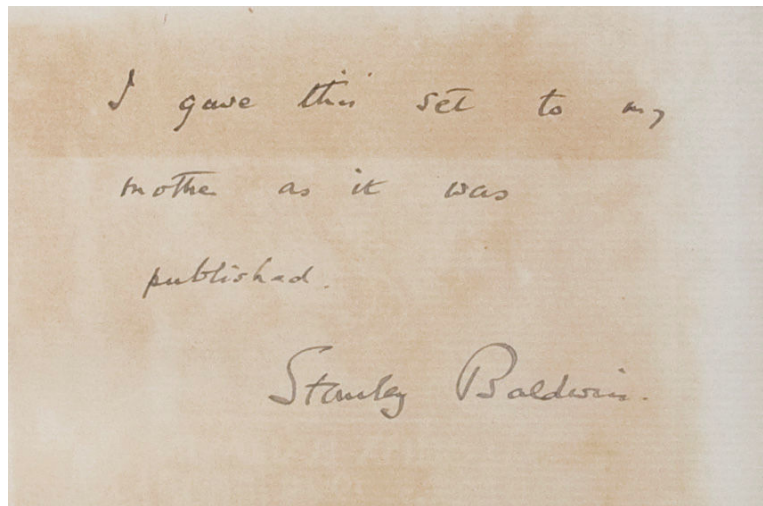 I gave this set to my
mother as it was
published.
Stanley Baldwin.